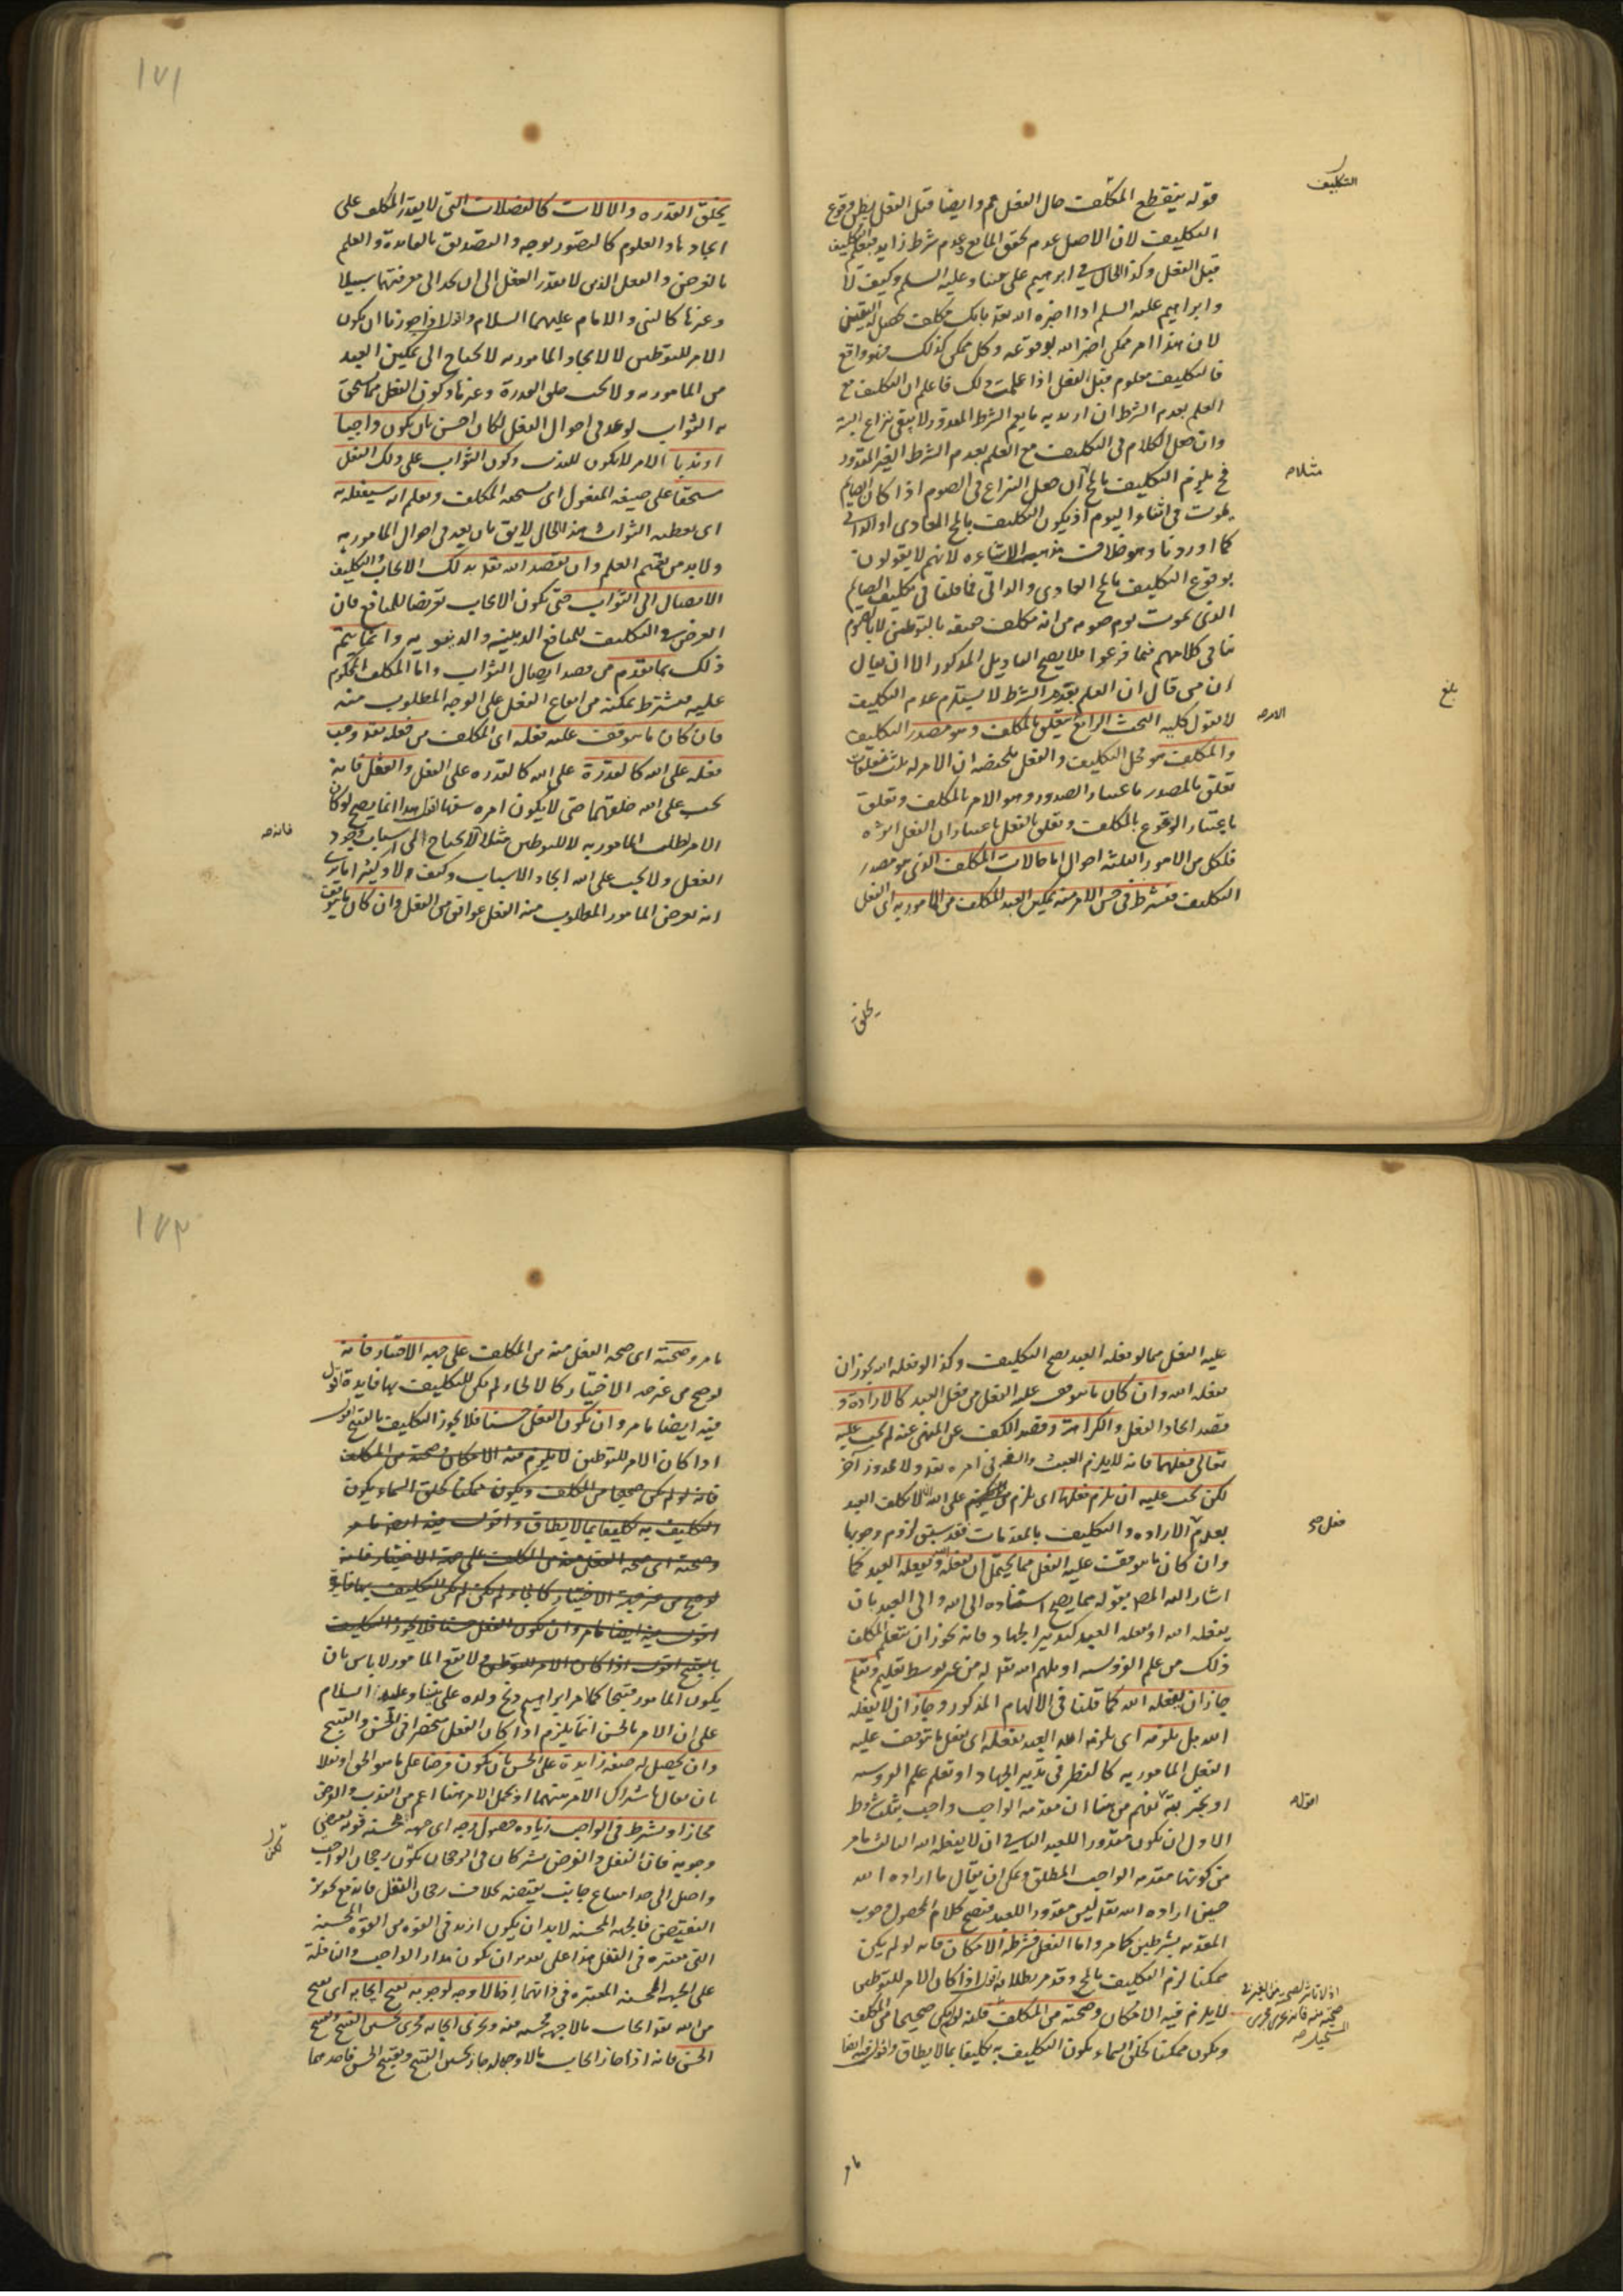 التكليف
قوله ينقطع المكلف حال الفعل مم وايضا قبل الفعل يظن وقوع
التكليف لان الاصل عدم تحقق المانع وعدم شرط زايد فيعلم التكليف
قبل الفعل وكذا الحال في ابراهيم على نبينا وعليه السلم وكيف لا
وابراهيم عليه السلم اذا اخبره الله تعه بانك مكلف يحصل له اليقين
لان هذا امر ممكن اخبر الله بوقوعه وكل ممكن كذلك فهو واقع
فالتكليف معلوم قبل الفعل اذا علمت ذلك فاعلم ان التكليف مع
العلم بعدم الشرط ان اريد به ما يعم الشرط المقدور لا يبقى نزاع البتة
وان جعل الكلام في التكليف مع العلم بعدم الشرط الغير المقدور
فح يلزم التكليف بالمح لان جعل النزاع في الصوم اذا كان الصايم
مثلا صح
يموت في اثناء اليوم اذ يكون التكليف بالمح العادي او الذاتي
كما اوردنا وهو خلاف مذهب الاشاعره لانهم لا يقولون
بوقوع التكليف بالمح العادي والذاتي فما قلنا في تكليف الصايم
الذي يموت يوم صومه من انه مكلف حقيقه بالتوطين لا بالصوم
ينافي كلامهم فيما فرعوا فلا يصح التاويل المذكور الا ان يقال
ان من قال ان العلم بفقد الشرط لا يستلزم عدم التكليف
بلغ
لا يقول كليه البحث الرابع يتعلق بالمكلف وهو مصدر التكليف
الامر صح
والمكلف هو محل التكليف والفعل ملخصه ان الامر له ثلث متعلقات
تعلق بالمصدر باعتبار الصدور وهو الامر بالمكلف وتعلق
باعتبار الوقوع بالمكلف وتعلق بالفعل باعتبار ان الفعل اثره
فلكل من الامور الثلثه احوال اما حالات المكلف الذي هو مصدر
التكليف فيشترط في حسن الامر منه تمكين العبد المكلف من المامور به اي الفعل
يخلق
١٧١
يخلق القدره والالات كالعضلات التي لا يقدر المكلف على
ايجادها والعلوم كالتصور بوجه والتصديق بالفايدة والعلم
بالغرض والفعل الذي لا يقدر العقل الى ان يجد الى معرفتهما سبيلا
وغيرها كالنبي والامام عليهما السلام واقول اذا جوزنا ان يكون
الامر للتوطين لا لايجاد المامور به لا يحتاج الى تمكين العبد
من المامور به ولا يجب خلق القدرة وغيرها وكون الفعل مما يستحق
به الثواب لو عد في احوال الفعل لكان احسن بان يكون واجبا
او ندبا الامر لا يكون للعبث وكون الثواب على ذلك الفعل
مستحقا على صيغه المفعول اي يستحقه المكلف ويعلم انه سيفعله به
اي يعطيه الثواب هذا الحال لايق بان يعد في احوال المامور به
ولا بد من تقديم العلم وان يقصد الله تعه بذلك الايجاب والتكليف
الايصال الى الثواب حتى يكون الايجاب تعريضا للمنافع فان
الغرض في التكليف للمنافع الدينيه والدنيويه وانما يتم
ذلك بما تقدم من قصد ايصال الثواب واما المكلف المحكوم
عليه فيشترط تمكنه من ايقاع الفعل على الوجه المطلوب منه
فان كان ما يتوقف عليه فعله اي المكلف من فعله تعه وجب
فعله على الله كالقدرة على الله كالقدره على الفعل والعقل فانه
يجب على الله خلقهما حتى لا يكون امره سفها اقول هذا انما يصح لو كان
الامر لطلب المامور به لا للتوطين مثلا لا يحتاج الى اسباب وجود
فانه صح
الفعل ولا يجب على الله ايجاد الاسباب وكيف لا وكثيرا ما نرى
انه يعرض المامور المطلوب منه الفعل عوائق من الفعل وان كان ما يتوقف
عليه الفعل مما لو فعله العبد يصح التكليف وكذا لو فعله الله يجوز ان
يفعله الله وان كان ما يتوقف عليه الفعل من فعل العبد كالارادة و
قصد ايجاد الفعل والكراهة وقصد الكف عن المنهي عنه لم يجب عليه
تعالى فعلهما فانه لا يلزم العبث والسفه في امره تعه ولا محذور آخر
لكن يجب عليه ان يلزم فعلها اي يلزم على الله ان لا يكلف العبد
بعدم الاراده والتكليف بالمقدمات فقد سبق لزوم وجوبها
فعل صح
وان كان ما يتوقف عليه الفعل مما يحتمل ان يفعله الله ويفعله العبد كما
اشار اليه المص بقوله مما يصح استناده الى الله والى العبد بان
يفعله الله او يفعله العبد كتدبير الجهاد فانه يجوز ان يتعلم المكلف
ذلك من علم الفروسيه او يلهم الله تعه له من غير توسط تعليم وتعلم
جاز ان يفعله الله كما قلنا في الالهام المذكور وجاز ان لا يفعله
الله بل يلزمه اي يلزم الله العبد بفعله اي يفعل ما يتوقف عليه
الفعل المامور به كالنظر في تدبير الجهاد او تعلم علم الفروسيه
او يخير بينهما يفهم من هنا ان مقدمه الواجب واجب بثلث شروط
اقول صح
الاول ان يكون مقدورا للعبد الثاني ان لا يفعله الله الثالث ما مر
من كونها مقدمه الواجب المطلق ويمكن ان يقال ما اراده الله
حين اراده الله تعه ليس مقدورا للعبد فيصح كلام لحصول وجوب
المقدمه بشرطين كما مر واما الفعل فشرطه الامكان فانه لو لم يكن
ممكنا لزم التكليف بالمح وقد مر بطلانه اقول اذا كان الامر للتوطين
لا يلزم فيه الامكان وصحته من المكلف فانه لو لم يكن صحيحا من المكلف
ويكون ممكنا كخلق السماء يكون التكليف به تكليفا بما لا يطاق واقول فيه ايضا
ما مر
١٧٢
ما مر وصحته اي صحه الفعل منه من المكلف على جهه الاختيار فانه
لو صح من غير جهه الاختيار كالالجاء لم يكن للتكليف بها فايدة اقول
فيه ايضا ما مر وان يكون الفعل حسنا فلا يجوز التكليف بالقبيح اقول
اذا كان الامر للتوطين لا يلزم فيه الامكان وصحته من المكلف
فانه لو لم يكن صحيحا من المكلف ويكون ممكنا كخلق السماء يكون
التكليف به تكليفا بما لا يطاق واقول فيه ايضا ما مر
وصحته اي صحه الفعل منه من المكلف على جهة الاختيار فانه
لو صح من غير جهة الاختيار كالجاء لم يكن لم يكن للتكليف بها فايدة
اقول فيه ايضا ما مر وان يكون الفعل حسنا فلا يجوز التكليف
بالقبيح اقول اذا كان الامر للتوطين ولا يقع المامور لا باس بان
يكون المامور قبيحا كما امر ابراهيم ذبح ولده على نبينا وعليه السلام
على ان الامر بالحسن انما يلزم اذا كان الفعل منحصرا في الحسن والقبيح
وان يحصل له صفة زايدة على الحسن بان يكون فرضا على ما هو الحق او نفلا
بان يقال باشتراك الامر بينهما او يحمل الامر هنا اعم من الندب والفرض
مجازا ويشترط في الواجب زياده حصول وجه اي جهه محسنه قويه يقتضي
وجوبه فان النفل والفرض يشتركان في الرجحان لكن رجحان الواجب
واصل الى حد امتناع جانب نقيضه بخلاف رجحان النفل فانه مع تجويز
النقيض فالجهه المحسنه لا بد ان يكون ازيد في القوه من القوه المحسنه
التي معتبره في النفل هذا على تقدير ان يكون مدار الواجب والنافلة
على الجهه المحسنه المعتبره في ذاتهما اذ ما لا وجه لوجوبه يقبح ايجابه اي يقبح
من الله تعه ايجاب ما لا جهه محسنه فيه ويجري ايجابه مجرى تحسين القبيح وتقبيح
الحسن فانه اذا جاز ايجاب ما لا وجه له جاز تحسين القبيح وتقبيح الحسن